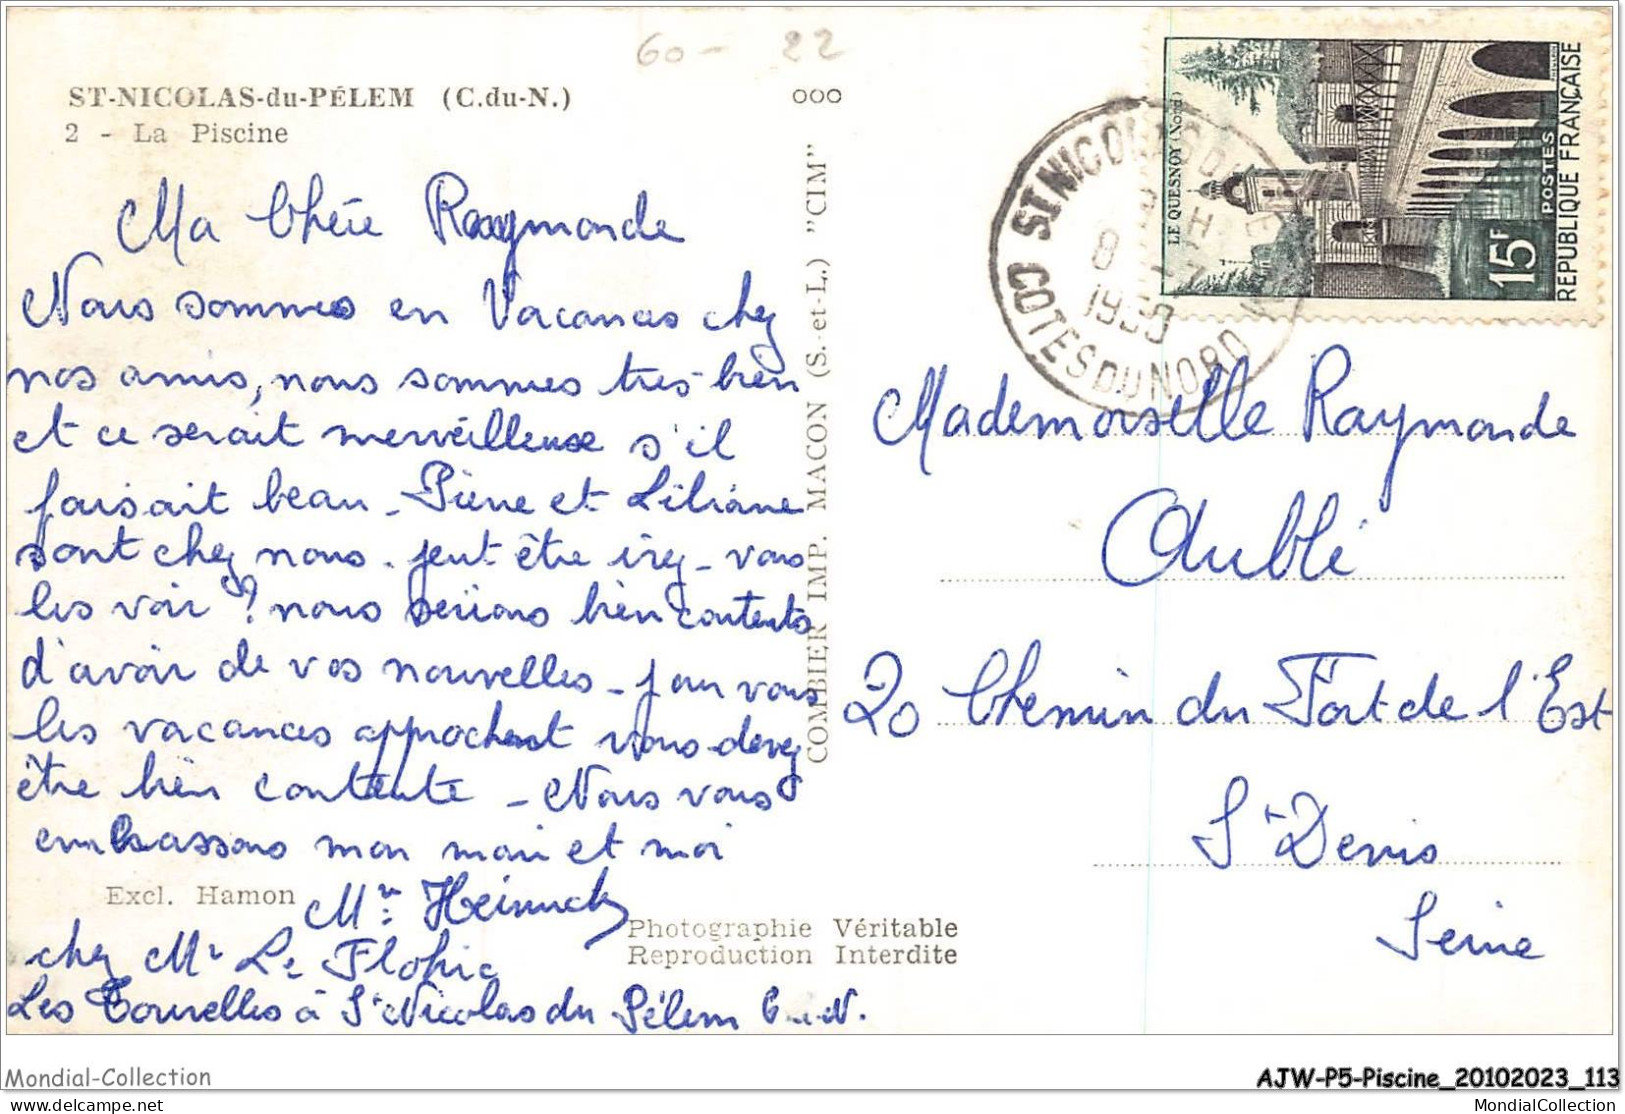 60- 22
ST-NICOLAS-du-PÉLEM (C.du-N.)
2 - La Piscine
Ma Chère Raymonde
Nous sommes en Vacances chez
nos amis, nous sommes très-bien
et ce serait merveilleuse s'il
faisait beau - Pierre et Liliane
sont chez nous - peut être irez-vous
les voir ? nous serions bien contents
d'avoir de vos nouvelles - pour vous
les vacances approchent vous devez
être bien contente - Nous vous
embrassons mon mari et moi
Excl. Hamon
chez Mr Le Flohic
Les Tourelles à St Nicolas du Pélem C.d.N.
Photographie Véritable
Reproduction Interdite
COMBIER IMP. MACON (S.-et-L.) "CIM"
ooo
ST NICOLAS DU PELEM
8 -7
COTES DU NORD
LE QUESNOY (Nord)
15F
POSTES
REPUBLIQUE FRANÇAISE
Mademoiselle Raymonde
Aublé
20 Chemin du Fort de l'Est
St Denis
Seine
Mondial-Collection
AJW-P5-Piscine_20102023_113
delcampe.net
MondialCollection